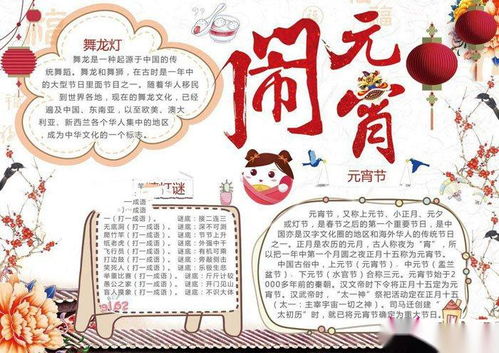 闹元宵
元宵节
舞龙灯
舞龙是一种起源于中国的传
统舞蹈。舞龙和舞狮，在古时是一年中
的大型节日里面节目之一。随着华人移民
到世界各地，现在的舞龙文化，已经
遍及中国、东南亚，以至欧美、澳大
利亚、新西兰各个华人集中的地区
，成为中华文化的一个标志。
灯谜
羊
一（打一成语
一（打一成语）。 谜底：接二连三
无底洞（打一成语）。 谜底：深不可测
爬竹竿（打一成语）。 谜底：节节上升
纸老虎（打一成语）。 谜底：外强中干
飞行员（打一成语）。 谜底：有机可乘
打边鼓（打一成语）。 谜底：旁敲侧击
笑死人（打一成语）。 谜底：乐极生悲
举重比赛（打一成语）。 谜底：斤斤计较
愚公之家（打一成语）。 谜底：开门见山
盲人摸象（打一成语）。 谜底：不识大体
元宵节，又称上元节、小正月、元夕
或灯节，是春节之后的第一个重要节日，是中
国亦是汉字文化圈的地区和海外华人的传统节日
之一。正月是农历的元月，古人称夜为“宵”，所
以把一年中第一个月圆之夜正月十五称为元宵节。
中国古俗中，上元节（元宵节）、中元节（盂兰
盆节）、下元节（水官节）合称三元。元宵节始于2
000多年前的秦朝。汉文帝时下令将正月十五定为元
宵节。汉武帝时，“太一神”祭祀活动定在正月十五
（太一：主宰宇宙一切之神）。司马迁创建“
太初历”时，就已将元宵节确定为重大节日。